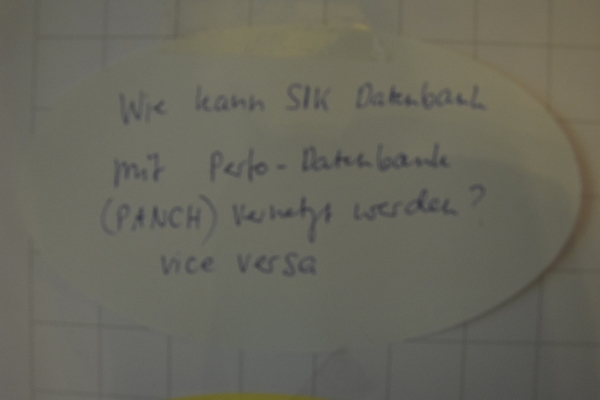 Wie kann SIK Datenbank
mit Perfo-Datenbank
(PANCH) vernetzt werden?
vice versa